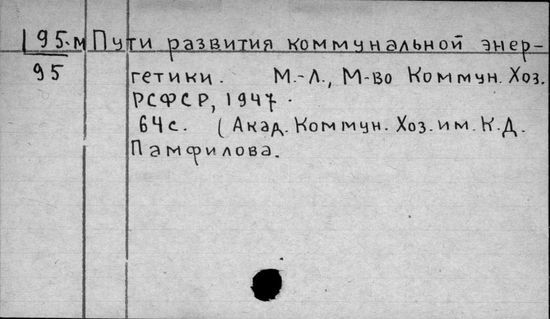 195.м Пути развития коммунальной энер-
95 гетики. М.-Л., М-во Коммун. Хоз.
РСФСР, 1947.
64с. (Акад. Коммун. Хоз. им. К.Д.
Памфилова.